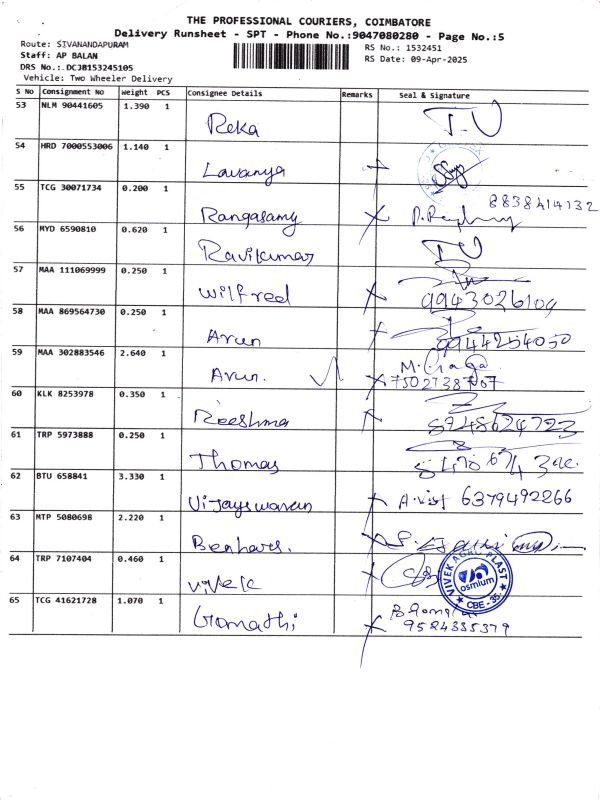 THE PROFESSIONAL COURIERS, COIMBATORE
Delivery Runsheet - SPT - Phone No.:9047080280 - Page No.:5
Route: SIVANANDAPURAM
RS No.: 1532451
Staff: AP BALAN
RS Date: 09-Apr-2025
DRS No.:.DCJB153245105
Vehicle: Two Wheeler Delivery
S No Consignment No Weight PCS Consignee Details Remarks Seal & Signature
53 NLM 90441605 1.390 1 Reka
54 HRD 7000553006 1.140 1 Lavanya
55 TCG 30071734 0.200 1 Rangasamy 8838414132
56 MYD 6590810 0.620 1 Ravikumar
57 MAA 111069999 0.250 1 Wilfred 9943026109
58 MAA 869564730 0.250 1 Arun 9944254050
59 MAA 302883546 2.640 1 Arun. 7502738707
60 KLK 8253978 0.350 1 Reeshma 8748624723
61 TRP 5973888 0.250 1 Thomas
62 BTU 658841 3.330 1 Vijayswaran 6379492266
63 MTP 5080698 2.220 1
64 TRP 7107404 0.460 1 Vivek VIVEK AGRO PLAST osmium CBE - 35.
65 TCG 41621728 1.070 1 Gomathi 9524335379